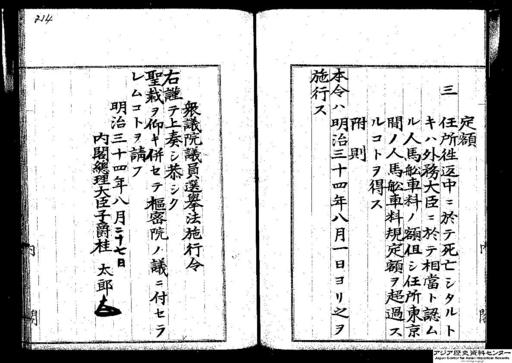 定額
三 任所往返中ニ於テ死亡シタルト
キハ外務大臣ニ於テ相當ト認ム
ル人馬舩車料ノ額但シ任所東京
間ノ人馬舩車料規定額ヲ超過ス
ルコトヲ得ス
附則
本令ハ明治三十四年八月一日ヨリ之ヲ
施行ス
214
衆議院議員選擧法施行令
右謹テ上奏シ恭シク
聖裁ヲ仰キ併セテ樞密院ノ議ニ付セラ
レムコトヲ請フ
明治三十四年八月二十七日
内閣總理大臣子爵桂太郎
内閣
内閣
アジア歴史資料センター
Japan Center for Asian Historical Records